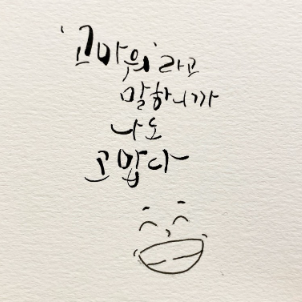 '고마워'라고
말하니까
나도
고맙다